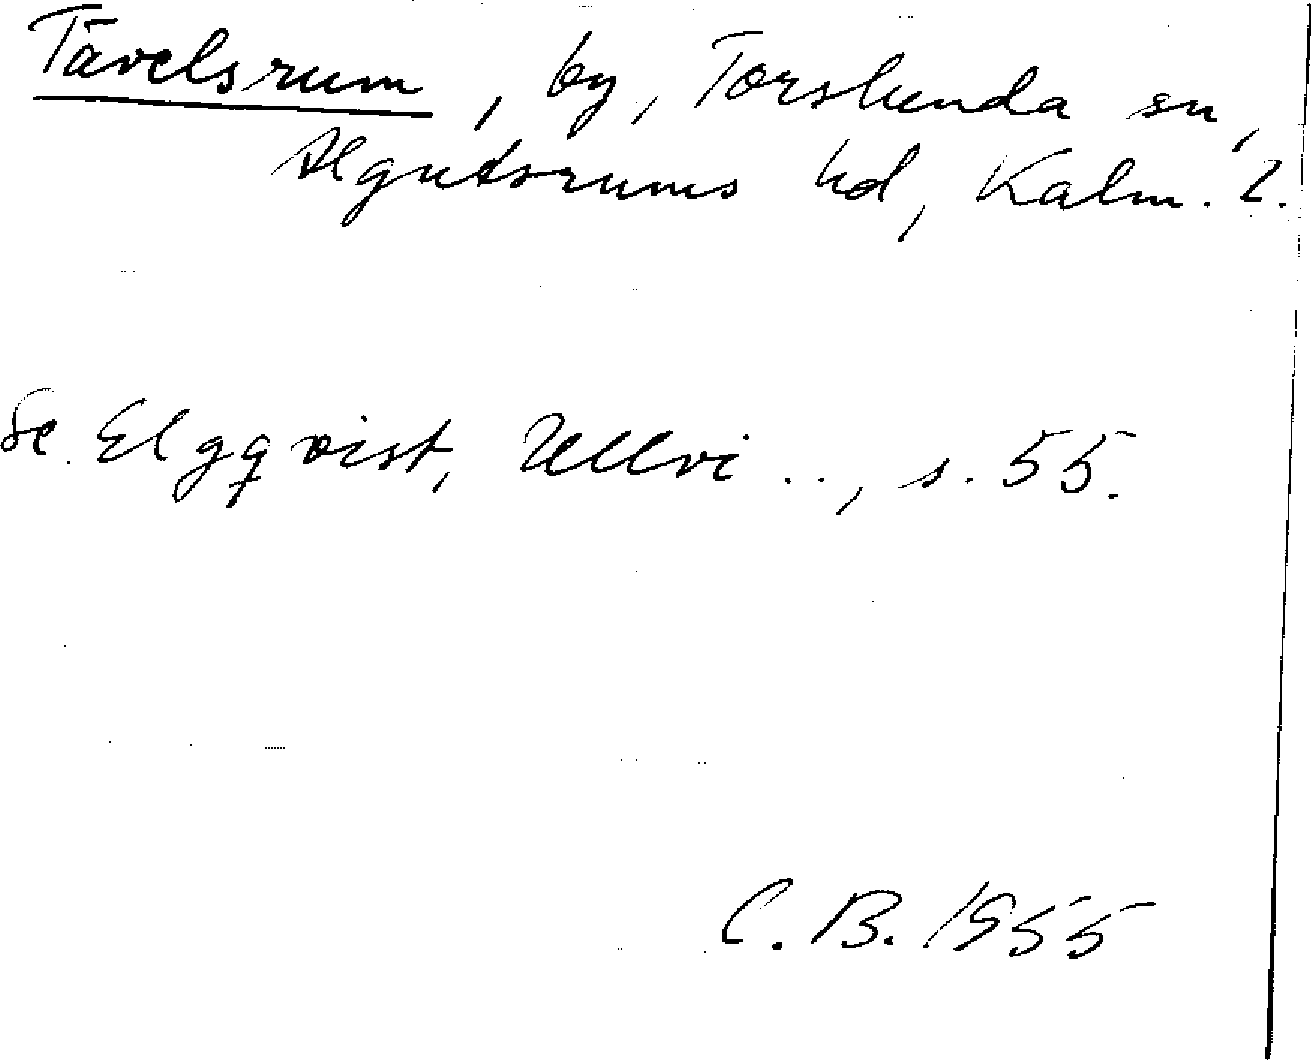 Tävelsrum, by, Torslunda sn,
Algutsrums hd, Kalm. l.
Se Elgqvist, Ullvi .., s. 55.
C. B. 1955